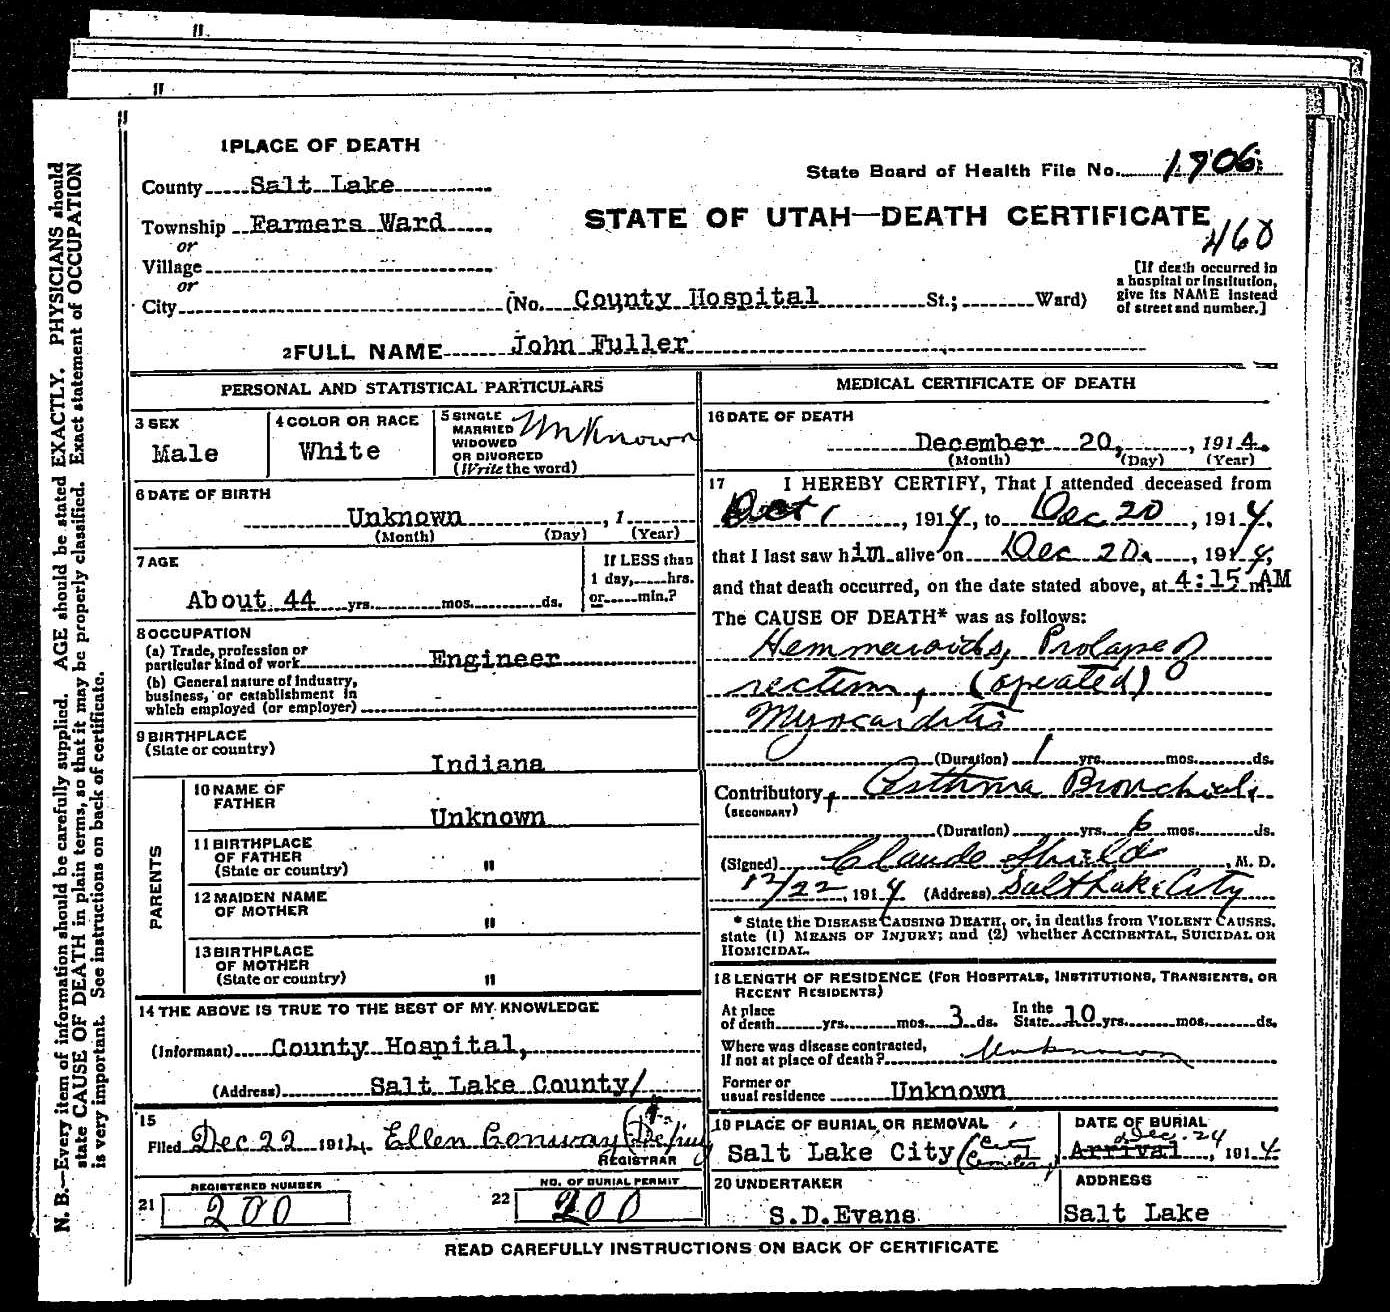 1 PLACE OF DEATH
County Salt Lake
State Board of Health File No. 1906
Township Farmers Ward
STATE OF UTAH—DEATH CERTIFICATE
460
or
Village
or
City (No. County Hospital St.; Ward)
[If death occurred in
a hospital or institution,
give its NAME instead
of street and number.]
2 FULL NAME John Fuller
PERSONAL AND STATISTICAL PARTICULARS
3 SEX
Male
4 COLOR OR RACE
White
5 SINGLE
MARRIED
WIDOWED
OR DIVORCED
(Write the word)
Unknown
6 DATE OF BIRTH
Unknown , 1
(Month) (Day) (Year)
7 AGE
About 44 yrs. mos. ds.
If LESS than
1 day, hrs.
or min.?
8 OCCUPATION
(a) Trade, profession or
particular kind of work Engineer
(b) General nature of industry,
business, or establishment in
which employed (or employer)
9 BIRTHPLACE
(State or country)
Indiana
PARENTS
10 NAME OF
FATHER
Unknown
11 BIRTHPLACE
OF FATHER
(State or country) "
12 MAIDEN NAME
OF MOTHER
"
13 BIRTHPLACE
OF MOTHER
(State or country) "
14 THE ABOVE IS TRUE TO THE BEST OF MY KNOWLEDGE
(Informant) County Hospital,
(Address) Salt Lake County/
15
Filed Dec 22 1914. Ellen Conway (Deputy
REGISTRAR
REGISTERED NUMBER
21 200
NO. OF BURIAL PERMIT
22 200
MEDICAL CERTIFICATE OF DEATH
16 DATE OF DEATH
December 20, , 1914.
(Month) (Day) (Year)
17 I HEREBY CERTIFY, That I attended deceased from
Oct 1 , 1914, to Dec 20 , 1914,
that I last saw him alive on Dec 20. , 1914,
and that death occurred, on the date stated above, at 4:15 AM m.
The CAUSE OF DEATH* was as follows:
Hemmaroids, Prolapse of
rectum, (operated)
Myocarditis
(Duration) 1 yrs. mos. ds.
Contributory Asthma Bronchial
(SECONDARY)
(Duration) yrs. 6 mos. ds.
(Signed) Claude Shields , M. D.
12/22, 1914 (Address) Salt Lake City
* State the DISEASE CAUSING DEATH, or, in deaths from VIOLENT CAUSES,
state (1) MEANS OF INJURY; and (2) whether ACCIDENTAL, SUICIDAL OR
HOMICIDAL.
18 LENGTH OF RESIDENCE (FOR HOSPITALS, INSTITUTIONS, TRANSIENTS, OR
RECENT RESIDENTS)
At place
of death yrs. mos. 3 ds. In the
State 10 yrs. mos. ds.
Where was disease contracted,
If not at place of death? Unknown
Former or
usual residence Unknown
19 PLACE OF BURIAL OR REMOVAL
Salt Lake City (City
Cemetery)
DATE OF BURIAL
Dec. 24
Arrival , 1914
20 UNDERTAKER
S.D.Evans
ADDRESS
Salt Lake
READ CAREFULLY INSTRUCTIONS ON BACK OF CERTIFICATE
N. B.—Every item of information should be carefully supplied. AGE should be stated EXACTLY. PHYSICIANS should
state CAUSE OF DEATH in plain terms, so that it may be properly classified. Exact statement of OCCUPATION
is very important. See instructions on back of certificate.